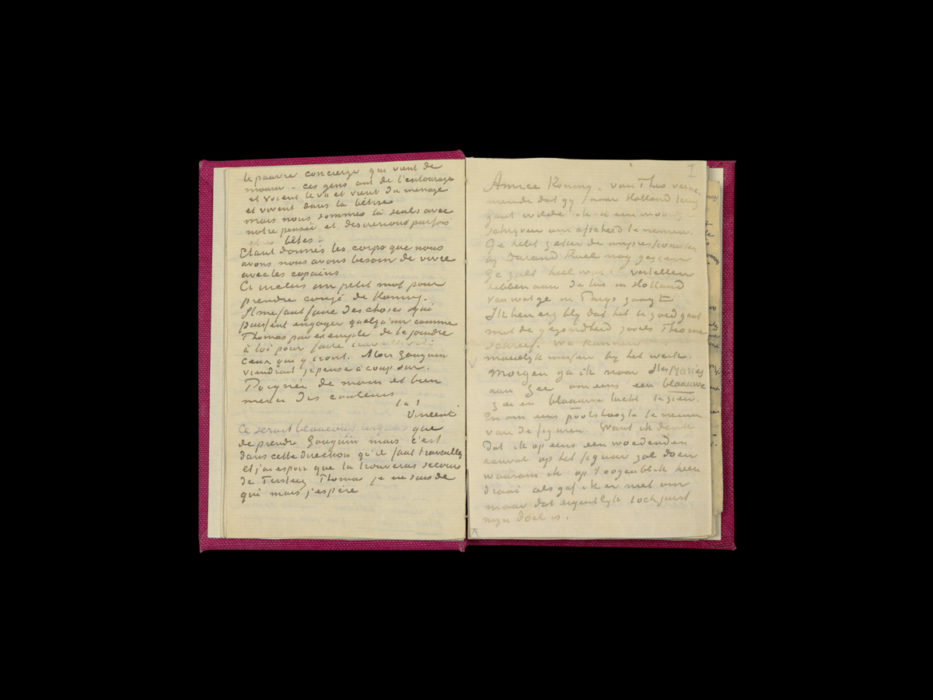 le pauvre concierge qui vient de
mourir – ces gens ont de l'entourage
et voient le va et vient du menage
et vivent dans la bêtise
mais nous sommes là seuls avec
notre pensée et desirerions parfois
bêtes.
Etant donnés les corps que nous
avons nous avons besoin de vivre
avec les copains.
Ci inclus un petit mot pour
prendre congé de Koning.
Il me faut faire des choses qui
puissent engager quelqu'un comme
Thomas par exemple de se joindre
à toi pour faire
ceux qui y iront. Alors Gauguin
viendrait je pense à coup sur.
Poignée de main et bien
merci des couleurs
t. à t.
Vincent
Ce serait beaucoup que
de prendre Gauguin mais c'est
dans cette direction qu'il faut travailler
et j'ai espoir que tu trouveras secours
de Tersteeg Thomas je ne sais de
qui mais j'espère
1
Amice Koning. van Theo
dat gij naar Holland terug
gaat wilde ik U een woord
schrijven om afscheid te nemen.
Ge hebt zeker de impressionisten
bij Durand Ruel nog gezien
Ge zult heel wat te vertellen
hebben aan da lui in Holland
van wat ge in Parijs zaagt
Ik ben erg blij dat het U goed gaat
met de gezondheid zooals Theo me
schreef. We kunnen
moeielijk missen bij het werk.
Morgen ga ik naar Stes Maries
aan Zee om eens een blaauwe
zee en blaauwe lucht te zien.
En om eens poolshoogte te nemen
van de figuren. Want ik denk
dat ik op eens een woedenden
aanval op het figuur zal doen
waarom ik op 't oogenblik heen
draai als gaf ik er niet om
maar dat eigentlijk toch juist
mijn doel is.